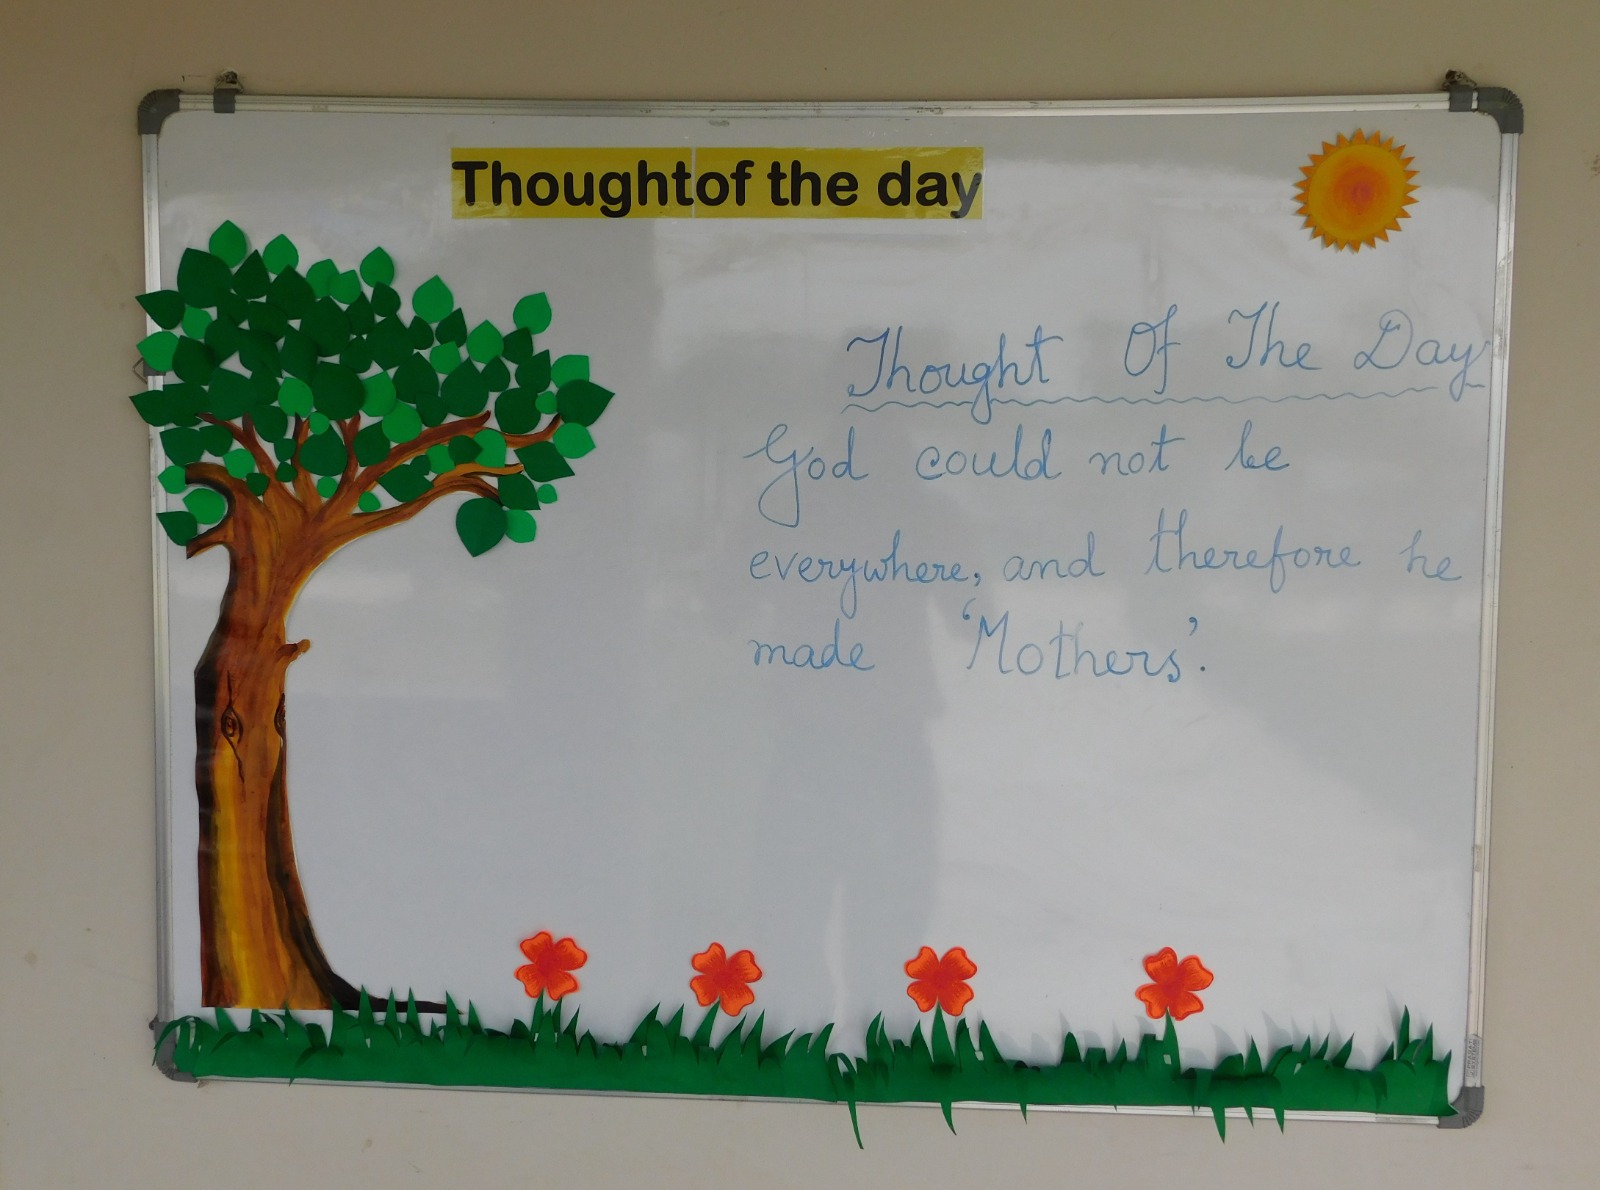 Thought of the day
Thought Of The Day
God could not be
everywhere, and therefore he
made 'Mothers'.